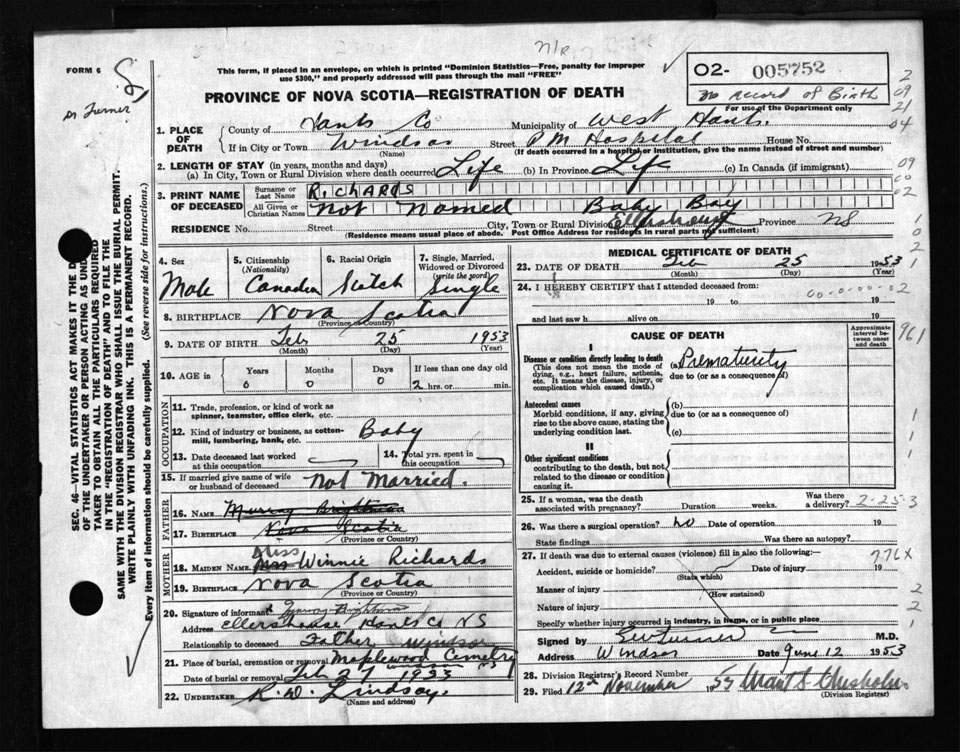 FORM 6
Dr Turner
This form, if placed in an envelope, on which is printed "Dominion Statistics—Free, penalty for improper
use $300," and properly addressed will pass through the mail "FREE"
PROVINCE OF NOVA SCOTIA—REGISTRATION OF DEATH
02- 005752
No record of Birth
For use of the Department only
2
09
21
04
1. PLACE OF DEATH
County of Hants Co Municipality of West Hants.
If in City or Town Windsor Street P.M Hospital House No.
(Name) (If death occurred in a hospital or institution, give the name instead of street and number)
2. LENGTH OF STAY (in years, months and days)
(a) In City, Town or Rural Division where death occurred Life (b) In Province Life (c) In Canada (if immigrant)
09
00
02
3. PRINT NAME OF DECEASED
Surname or Last Name RichARds
All Given or Christian Names Not Named Baby Boy
RESIDENCE No. Street City, Town or Rural Division Ellershouse Province NS
(Residence means usual place of abode. Post Office Address for residents in rural parts not sufficient)
4. Sex Male
5. Citizenship (Nationality) Canadian
6. Racial Origin Scotch
7. Single, Married, Widowed or Divorced (write the word) Single
8. BIRTHPLACE Nova Scotia
(Province or Country)
9. DATE OF BIRTH Feb 25 1953
(Month) (Day) (Year)
10. AGE in Years Months Days If less than one day old
0 0 0 2 hrs. or min.
OCCUPATION
11. Trade, profession, or kind of work as spinner, teamster, office clerk, etc.
12. Kind of industry or business, as cotton-mill, lumbering, bank, etc. Baby
13. Date deceased last worked at this occupation
14. Total yrs. spent in this occupation
15. If married give name of wife or husband of deceased Not Married.
FATHER
16. NAME Murray Brightman
17. BIRTHPLACE Nova Scotia
(Province or Country)
MOTHER
18. MAIDEN NAME Miss Winnie Richards
19. BIRTHPLACE Nova Scotia
(Province or Country)
20. Signature of informant Murray Brightman
Address Ellershouse Hants Co NS
Relationship to deceased Father Windsor
21. Place of burial, cremation or removal Maplewood Cemetery NS
Date of burial or removal Feb 27 1953
22. UNDERTAKER R. W. Lindsay.
(Name and address)
MEDICAL CERTIFICATE OF DEATH
23. DATE OF DEATH Feb 25 1953
(Month) (Day) (Year)
24. I HEREBY CERTIFY that I attended deceased from:
19 to 19
and last saw h alive on 19
00-00-00-02
CAUSE OF DEATH
Approximate interval between onset and death
961
I
Disease or condition directly leading to death
(This does not mean the mode of dying, e.g., heart failure, asthenia, etc. It means the disease, injury, or complication which caused death.)
(a) Prematurity
due to (or as a consequence of)
Antecedent causes
Morbid conditions, if any, giving rise to the above cause, stating the underlying condition last.
(b)
due to (or as a consequence of)
(c)
II
Other significant conditions
contributing to the death, but not related to the disease or condition causing it.
25. If a woman, was the death associated with pregnancy? Duration weeks. Was there a delivery? 2-25-3
26. Was there a surgical operation? No Date of operation 19
State findings Was there an autopsy?
27. If death was due to external causes (violence) fill in also the following:— 776X
Accident, suicide or homicide? Date of injury 19
(State which)
Manner of injury
(How sustained)
Nature of injury
Specify whether injury occurred in industry, in home, or in public place
Signed by EW Turner M.D.
Address Windsor Date June 12 1953
28. Division Registrar's Record Number
29. Filed 12th November 1954 Grant S. Chisholm
(Division Registrar)
SEC. 46—VITAL STATISTICS ACT MAKES IT THE D
OF THE UNDERTAKER OR PERSON ACTING AS UND
TAKER TO OBTAIN ALL THE PARTICULARS REQUIRED
IN THE "REGISTRATION OF DEATH" AND TO FILE THE
SAME WITH THE DIVISION REGISTRAR WHO SHALL ISSUE THE BURIAL PERMIT.
WRITE PLAINLY WITH UNFADING INK. THIS IS A PERMANENT RECORD.
Every item of information should be carefully supplied. (See reverse side for instructions.)